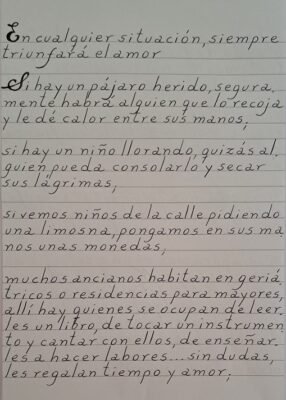 En cualquier situación, siempre
triunfará el amor
Si hay un pájaro herido, segura.
mente habrá alguien que lo recoja
y le dé calor entre sus manos;
si hay un niño llorando, quizás al.
guien pueda consolarlo y secar
sus lágrimas;
si vemos niños de la calle pidiendo
una limosna, pongamos en sus ma.
nos unas monedas;
muchos ancianos habitan en geriá.
tricos o residencias para mayores,
allí hay quienes se ocupan de leer.
les un libro, de tocar un instrumen.
to y cantar con ellos, de enseñar.
les a hacer labores... sin dudas,
les regalan tiempo y amor;